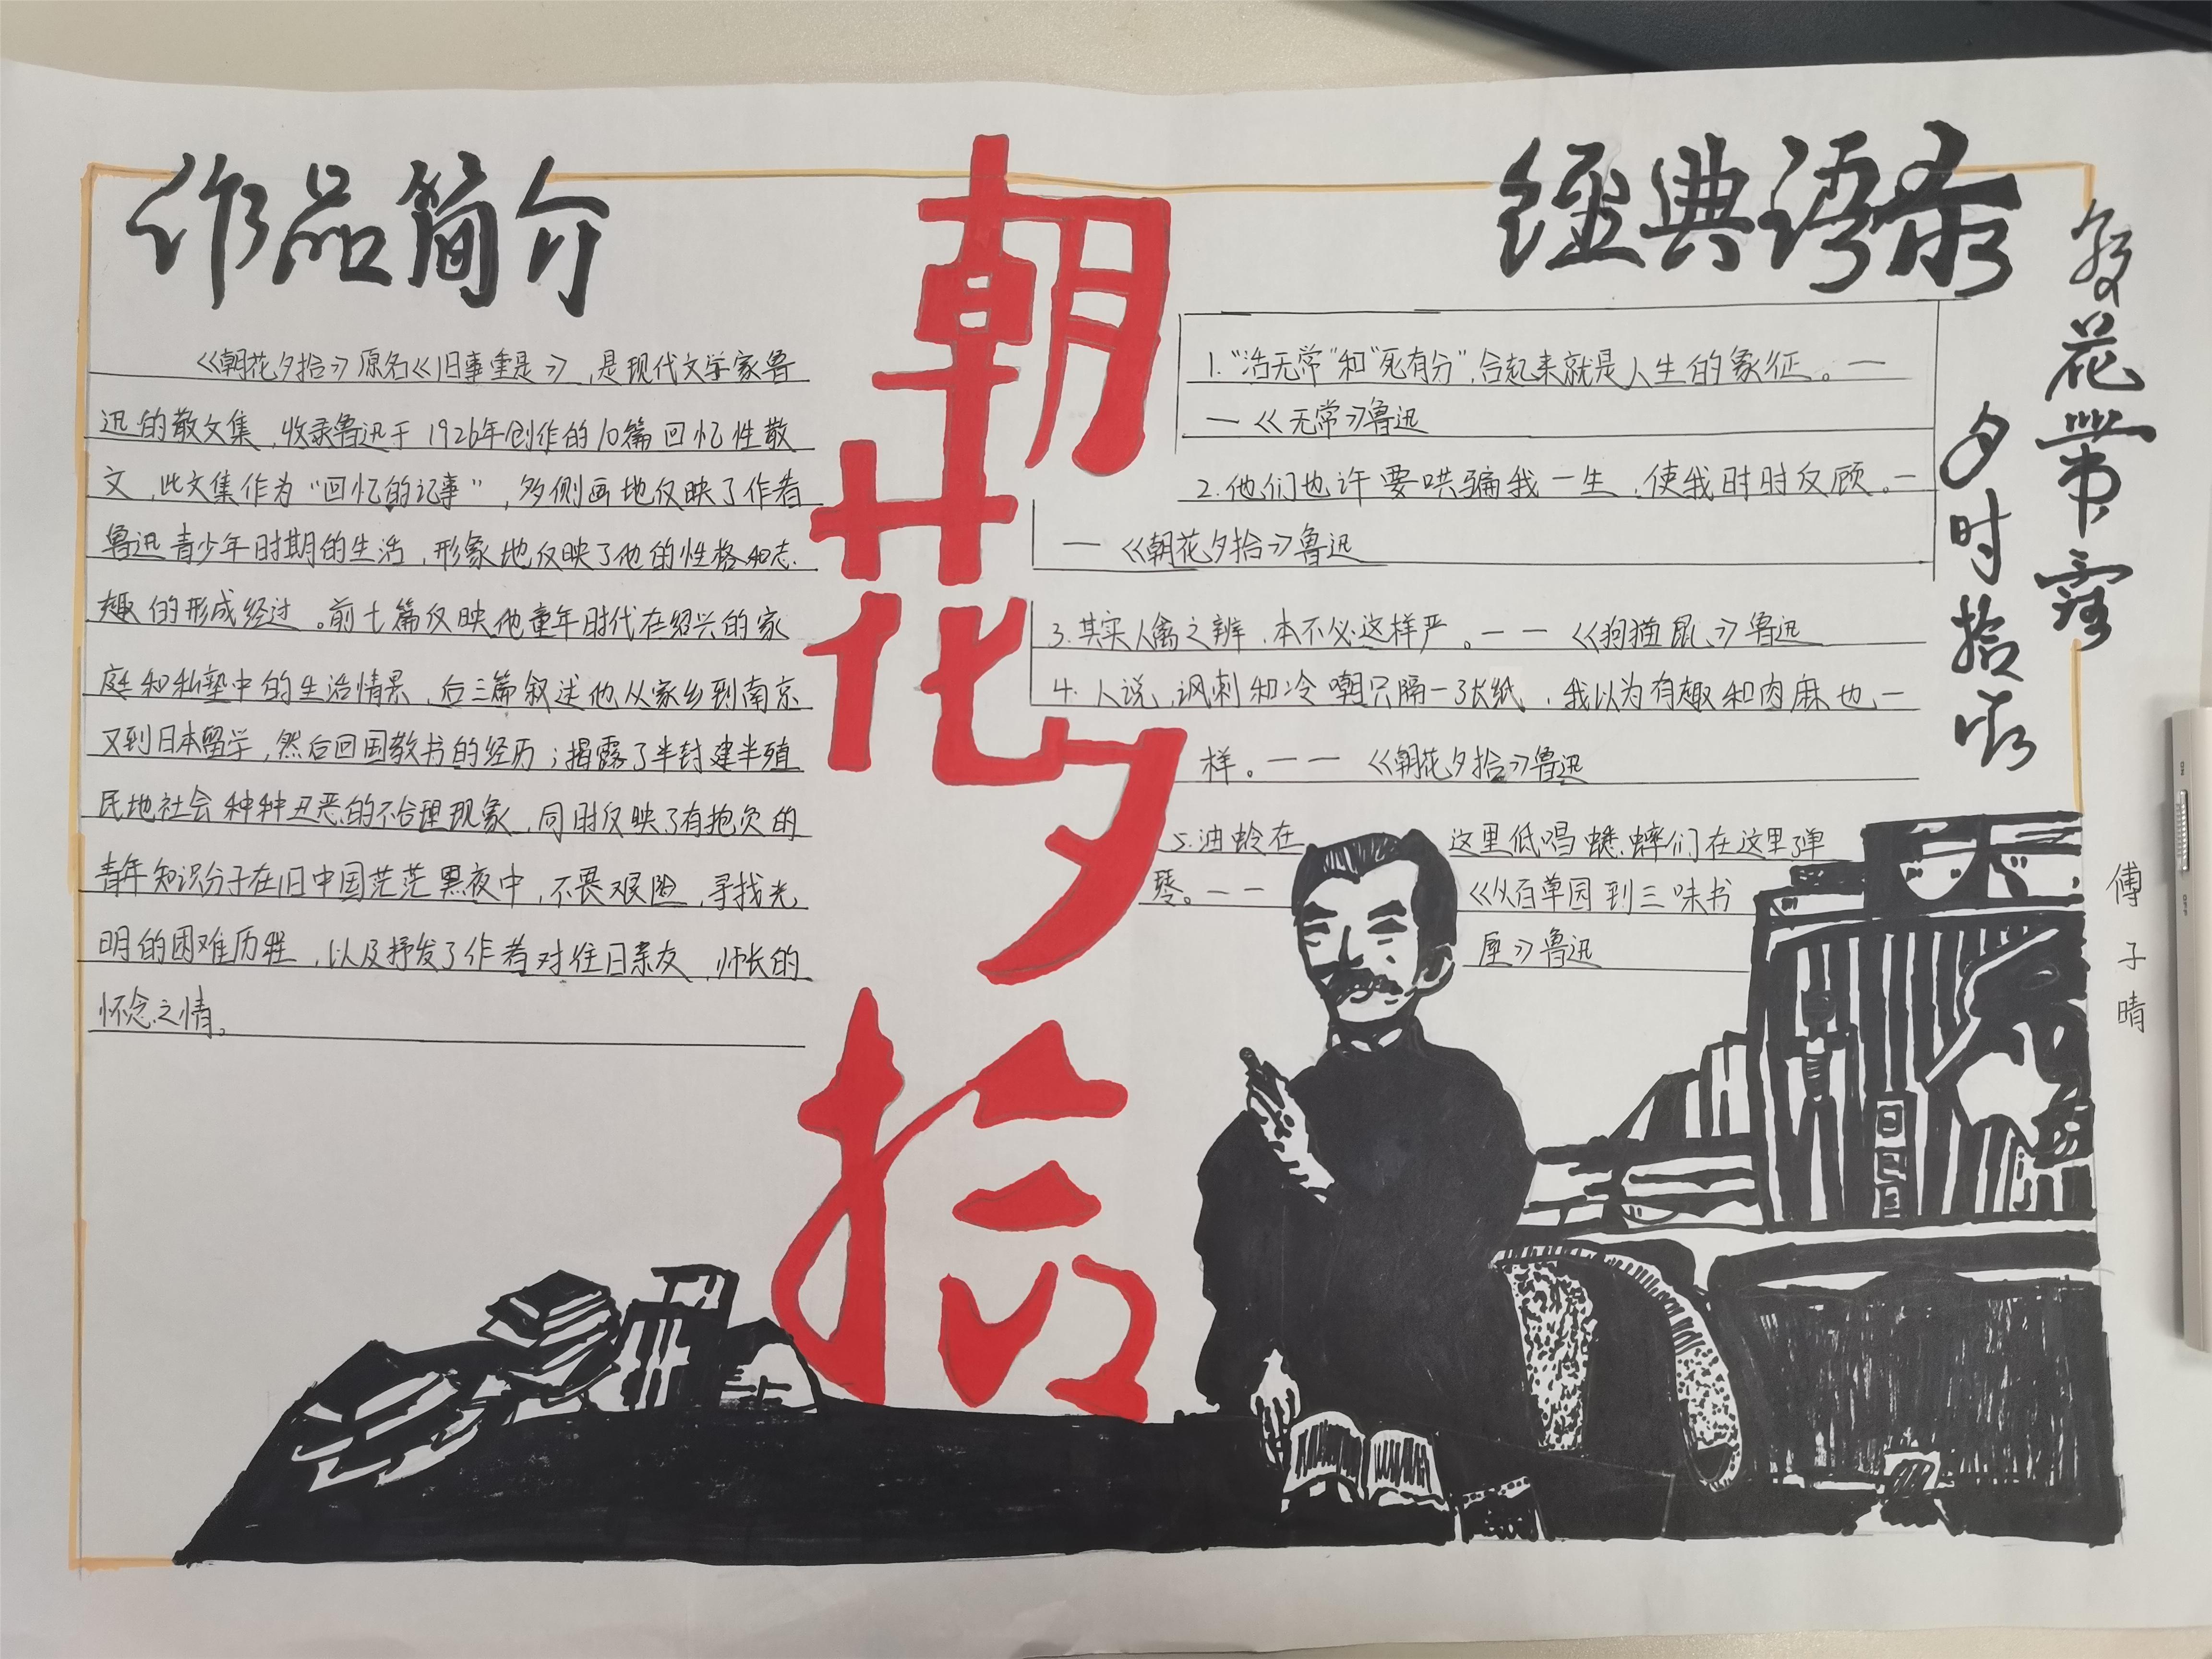 作品简介
《朝花夕拾》原名《旧事重提》,是现代文学家鲁
迅的散文集,收录鲁迅于1926年创作的10篇回忆性散
文,此文集作为“回忆的记事”,多侧面地反映了作者
鲁迅青少年时期的生活,形象地反映了他的性格和志
趣的形成经过。前七篇反映他童年时代在绍兴的家
庭和私塾中的生活情景,后三篇叙述他从家乡到南京
又到日本留学,然后回国教书的经历;揭露了半封建半殖
民地社会种种丑恶的不合理现象,同时反映了有抱负的
青年知识分子在旧中国茫茫黑夜中,不畏艰险,寻找光
明的困难历程,以及抒发了作者对往日亲友,师长的
怀念之情。
朝花夕拾
经典语录
1.“活无常”和“死有分”,合起来就是人生的象征。—
—《无常》鲁迅
2.他们也许要哄骗我一生,使我时时反顾。—
—《朝花夕拾》鲁迅
3.其实人禽之辨,本不必这样严。——《狗猫鼠》鲁迅
4.人说,讽刺和冷嘲只隔一张纸,我以为有趣和肉麻也一
样。——《朝花夕拾》鲁迅
5.油蛉在这里低唱蟋蟀们在这里弹
琴。——《从百草园到三味书
屋》鲁迅
花带露
夕时拾
傅子晴